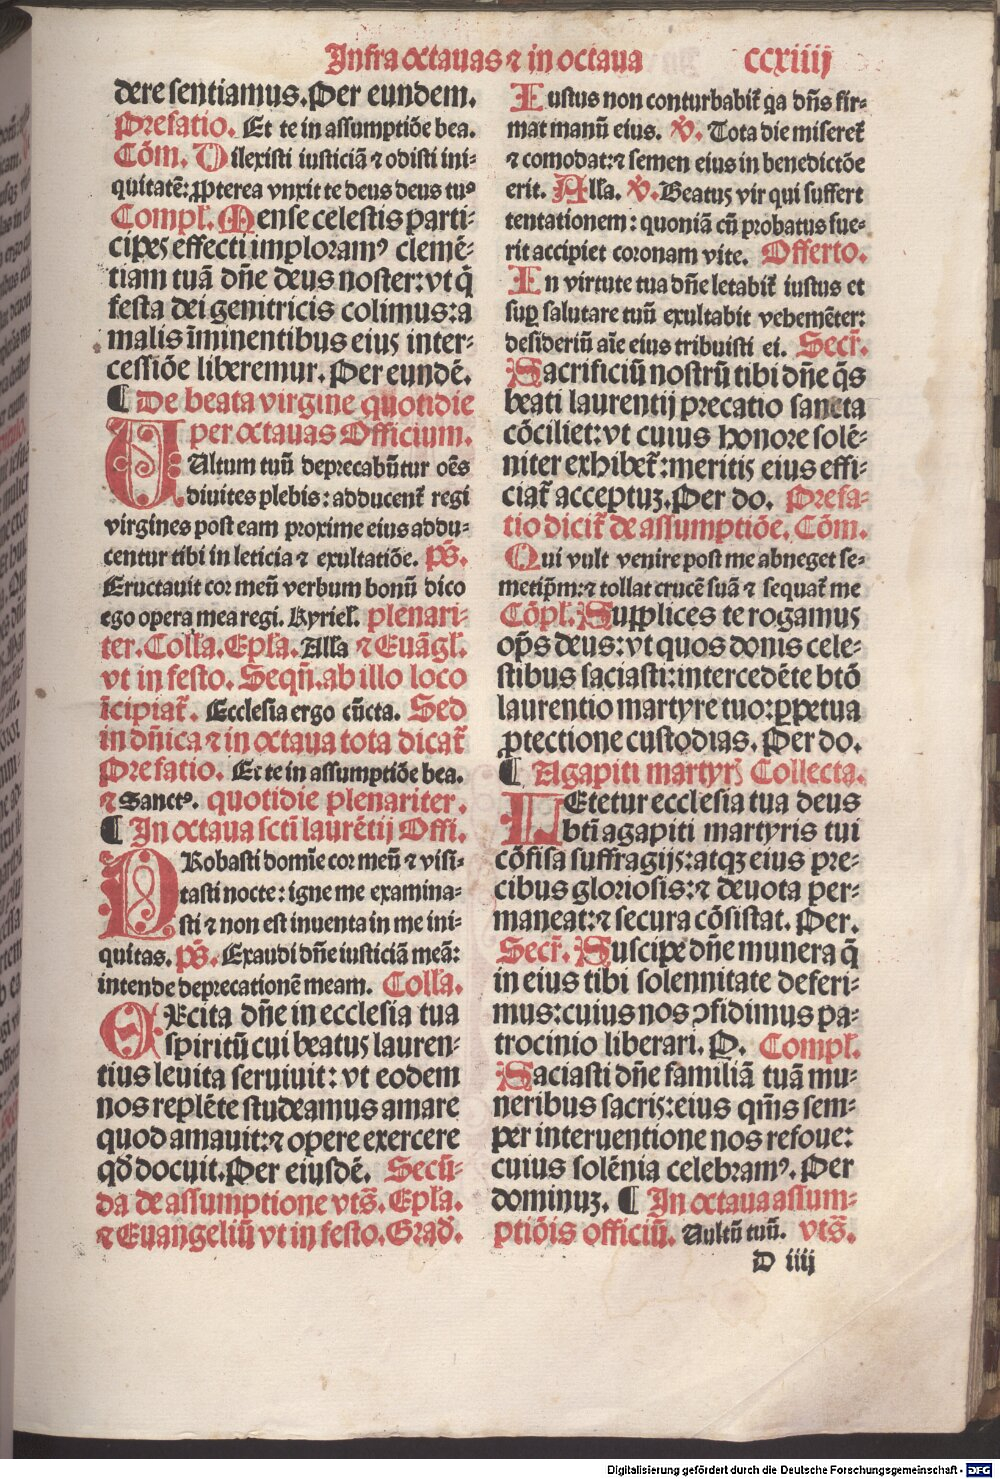 Infra octauas ⁊ in octaua ccxiiij
dere sentiamus. Per eundem.
Prefatio. Et te in assumptiōe bea.
Cōm. Dilexisti iusticiā ⁊ odisti ini-
quitatē: ꝓpterea vnxit te deus deus tuꝰ
Compl̄. Mense celestis parti-
cipes effecti imploramꝰ clemē-
tiam tuā dn̄e deus noster: vt q̇
festa dei genitricis colimus: a
malis īminentibus eius inter-
cessiōe liberemur. Per eundē.
¶ De beata virgine quotidie
per octauas Officium.
VUltum tuū deprecabūtur oēs
diuites plebis: adducent̄ regi
virgines post eam proxime eius addu-
centur tibi in leticia ⁊ exultatiōe. pš.
Eructauit cor meū verbum bonū dico
ego opera mea regi. Kyriel̄. plenari-
ter. Coll̄a. Epl̄a. All̄a ⁊ Euāgl̄.
vt in festo. Seqn̄. ab illo loco
īcipiat̄. Ecclesia ergo cūcta. Sed
in dn̄ica ⁊ in octaua tota dicat̄
Prefatio. Et te in assumptiōe bea.
⁊ Sanctꝰ. quotidie plenariter.
¶ In octaua scti laurētij Offi.
PRobasti domīe cor meū ⁊ visi-
tasti nocte: igne me examina-
sti ⁊ non est inuenta in me ini-
quitas. pš. Exaudi dn̄e iusticiā meā:
intende deprecationē meam. Coll̄a.
EXcita dn̄e in ecclesia tua
spiritū cui beatus lauren-
tius leuita seruiuit: vt eodem
nos replēte studeamus amare
quod amauit: ⁊ opere exercere
qd̄ docuit. Per eiusdē. Secū-
da de assumptione vts̄. Epl̄a.
⁊ Euangeliū vt in festo. Grad̄.
Iustus non conturbabit̄ qa dn̄s fir-
mat manū eius. v̄. Tota die miseret̄
⁊ comodat: ⁊ semen eius in benedictōe
erit. All̄a. v̄. Beatus vir qui suffert
tentationem: quoniā cū probatus fue-
rit accipiet coronam vite. Offerto.
In virtute tua dn̄e letabit̄ iustus et
suꝑ salutare tuū exultabit vehemēter:
desideriū aīe eius tribuisti ei. Secr̄.
Sacrificiū nostrū tibi dn̄e q̄s
beati laurentij precatio sancta
cōciliet: vt cuius honore solē-
niter exhibet̄: meritis eius effi-
ciat̄ acceptuꝫ. Per do. Prefa-
tio dicit̄ de assumptiōe. Cōm.
Qui vult venire post me abneget se-
metip̄m: ⁊ tollat crucē suā ⁊ sequat̄ me
Cōpl̄. Supplices te rogamus
op̄s deus: vt quos donis cele-
stibus saciasti: intercedēte btō
laurentio martyre tuo: ꝑpetua
ꝓtectione custodias. Per do.
¶ Agapiti martyrꝭ Collecta.
LEtetur ecclesia tua deus
btī agapiti martyris tui
cōfisa suffragijs: atqꝫ eius pre-
cibus gloriosis: ⁊ deuota per-
maneat: ⁊ secura cōsistat. Per.
Secr̄. Suscipe dn̄e munera q̄
in eius tibi solennitate deferi-
mus: cuius nos ↄfidimus pa-
trocinio liberari. P. Compl̄.
Saciasti dn̄e familiā tuā mu-
neribus sacris: eius qm̄s sem-
per interuentione nos refoue:
cuius solēnia celebramꝰ. Per
dominuꝫ. ¶ In octaua assum-
ptiōis officiū. Vultū tuū. vts̄.
D iiij
Digitalisierung gefördert durch die Deutsche Forschungsgemeinschaft - DFG